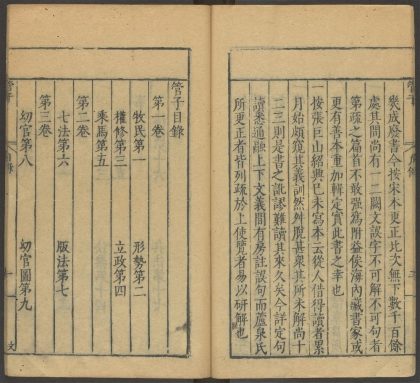 幾成廢書今按宋本更正比次無下數千百餘
處其間尚有一二闕文誤字不可解不可句者
第疏之篇首不敢強為附益俟海內藏書家或
更有善本重加輯定實此書之幸也
一按張巨山紹興己未寫本云從人借得讀者累
月始頗窺其義訓然舛脫甚眾其所未解尚十
二三則是書之訛謬難讀其來久矣今詳定句
讀悉通融上下文義間有房註誤句而蘆泉氏
所更正者皆列疏於上使覽者易以研解也
管子目錄
第一卷
牧民第一 形勢第二
權修第三 立政第四
乘馬第五
第二卷
七法第六 版法第七
第三卷
幼官第八 幼官圖第九
管子
目錄